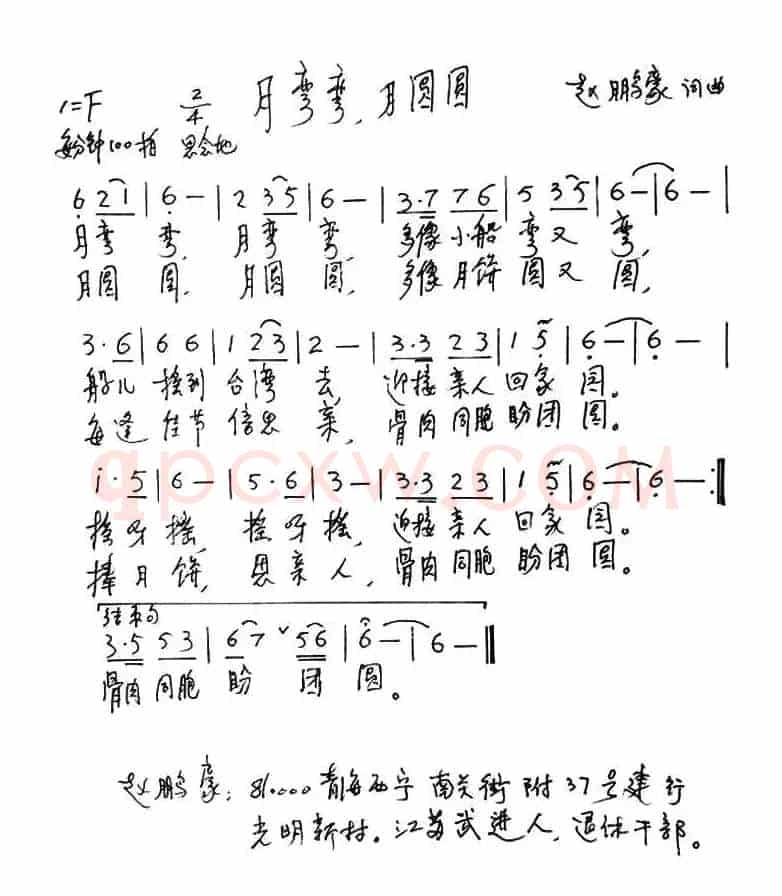 月弯弯，月圆圆
1=F 2/4 赵鹏豪 词曲
每分钟100拍 思念地
6 2 1 | 6 — | 2 3 5 | 6 — | 3·7 7 6 | 5 3 5 | 6 — | 6 — |
月弯 弯, 月弯 弯, 多像小船 弯又 弯,
月圆 圆, 月圆 圆, 多像月饼 圆又 圆,
3·6 | 6 6 | 1 2 3 | 2 — | 3·3 2 3 | 1 5 | 6 — | 6 — |
船儿 摇到 台湾 去, 迎接亲人 回家 园。
每逢 佳节 倍思 亲, 骨肉同胞 盼团 圆。
i·5 | 6 — | 5·6 | 3 — | 3·3 2 3 | 1 5 | 6 — | 6 — :‖
摇呀 摇, 摇呀 摇, 迎接亲人 回家 园。
捧月 饼, 思亲 人, 骨肉同胞 盼团 圆。
结束句
3·5 5 3 | 6 7 ˇ 5 6 | 6 — | 6 — ‖
骨肉同胞 盼 团 圆。
qpcxw.com
赵鹏豪：810000青海西宁南关街附37号建行
光明新村。江苏武进人，退休干部。